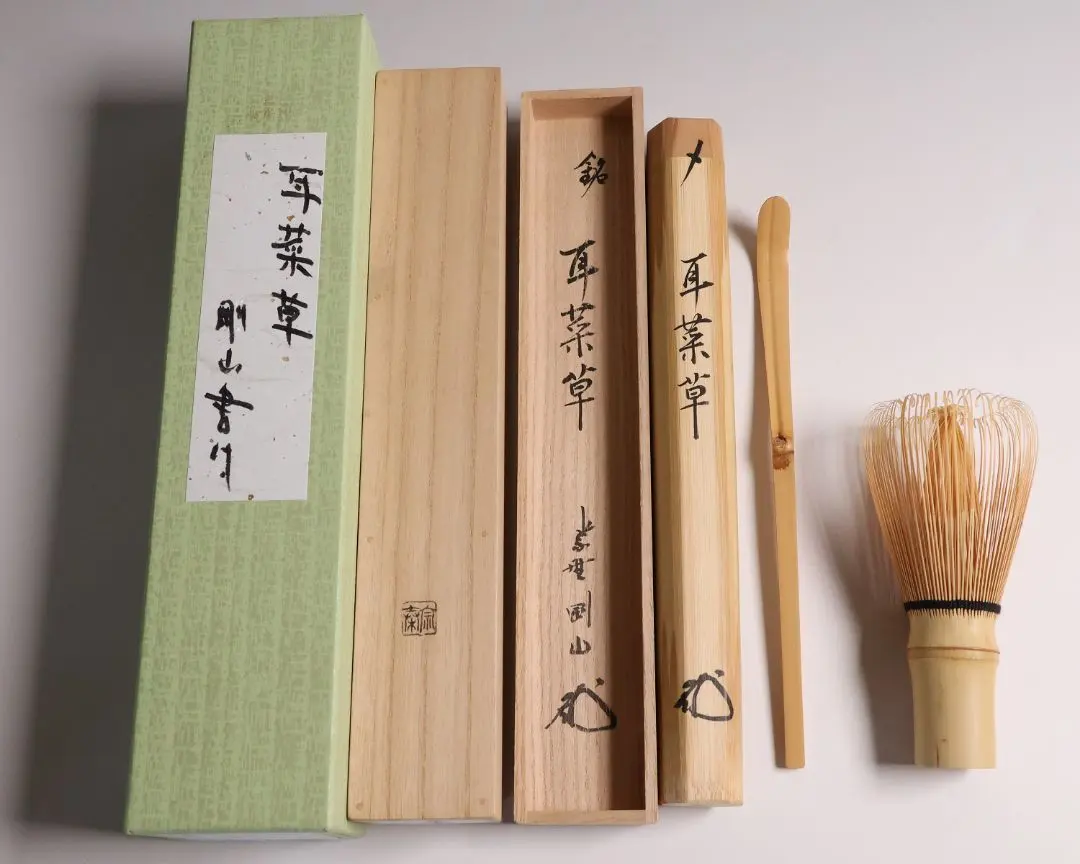 耳菜草
剛山書付
銘 耳菜草 紫埜剛山
〆 耳菜草